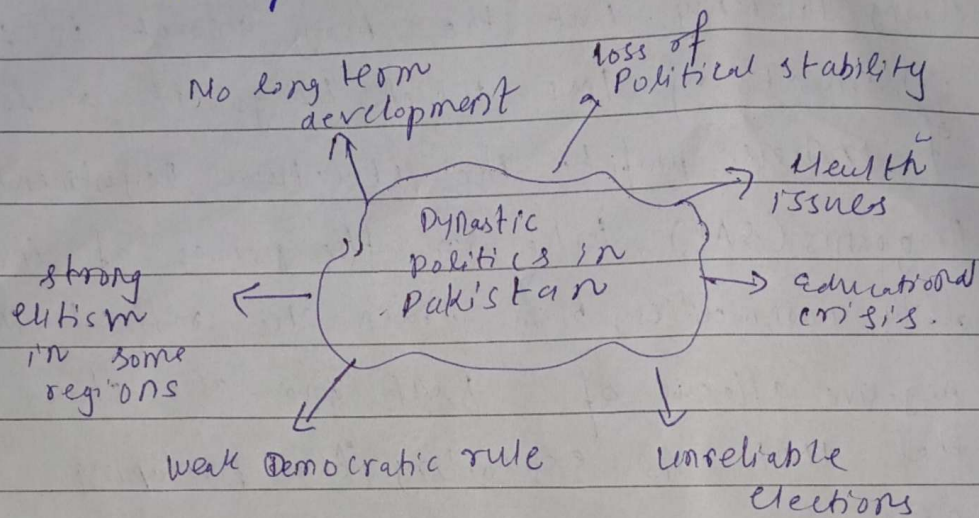 No long term
development
loss of
Political stability
Health
issues
Dynastic
politics in
Pakistan
strong
elitism
in some
regions
Educational
crisis.
weak Democratic rule
unreliable
elections